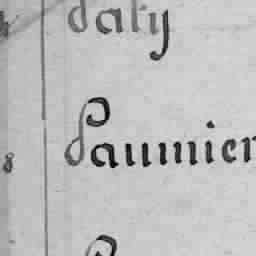 daty
8 Paumier